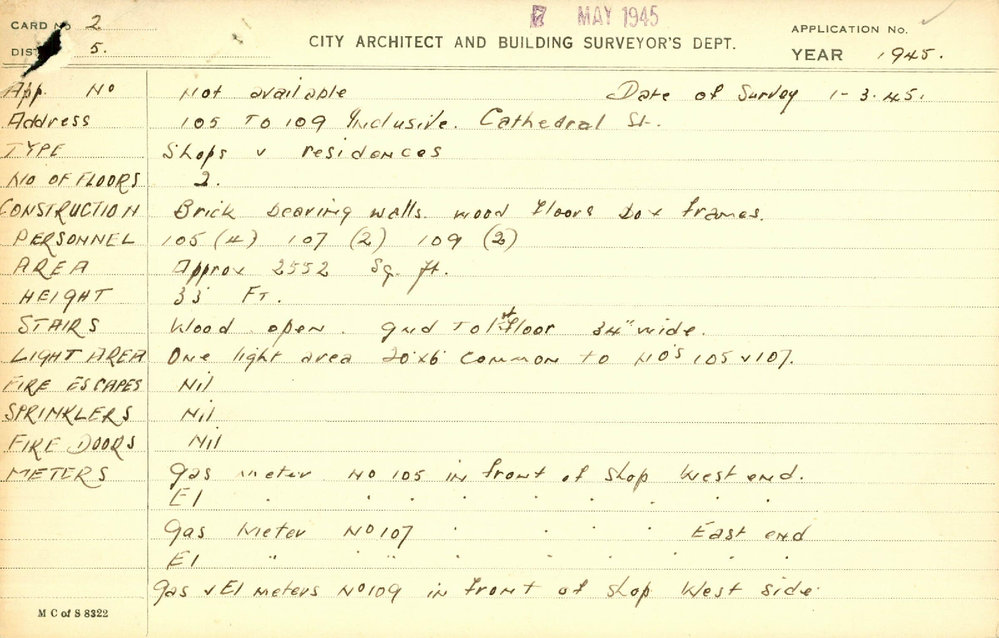 7 MAY 1945
CARD No 2
DIST 5.
CITY ARCHITECT AND BUILDING SURVEYOR'S DEPT.
APPLICATION No.
YEAR 1945.
App. No Not available Date of Survey 1-3.45.
Address 105 To 109 Inclusive. Cathedral St.
TYPE Shops & residences
NO OF FLOORS 2.
CONSTRUCTION Brick bearing walls. wood floors Do & frames.
PERSONNEL 105 (4) 107 (2) 109 (2)
AREA Approx 2552 Sq. ft.
HEIGHT 33 FT.
STAIRS Wood open. gnd To 1st floor 34" wide.
LIGHT AREA One light area 20'x6' common to No's 105 & 107.
FIRE ESCAPES Nil
SPRINKLERS Nil
FIRE DOORS Nil
METERS Gas meter No 105 in front of shop West end.
El . . . . . . . .
Gas Meter No 107 . . . . East end
El " . " . . . . . .
Gas & El meters No 109 in front of shop West side.
M C of S 8322